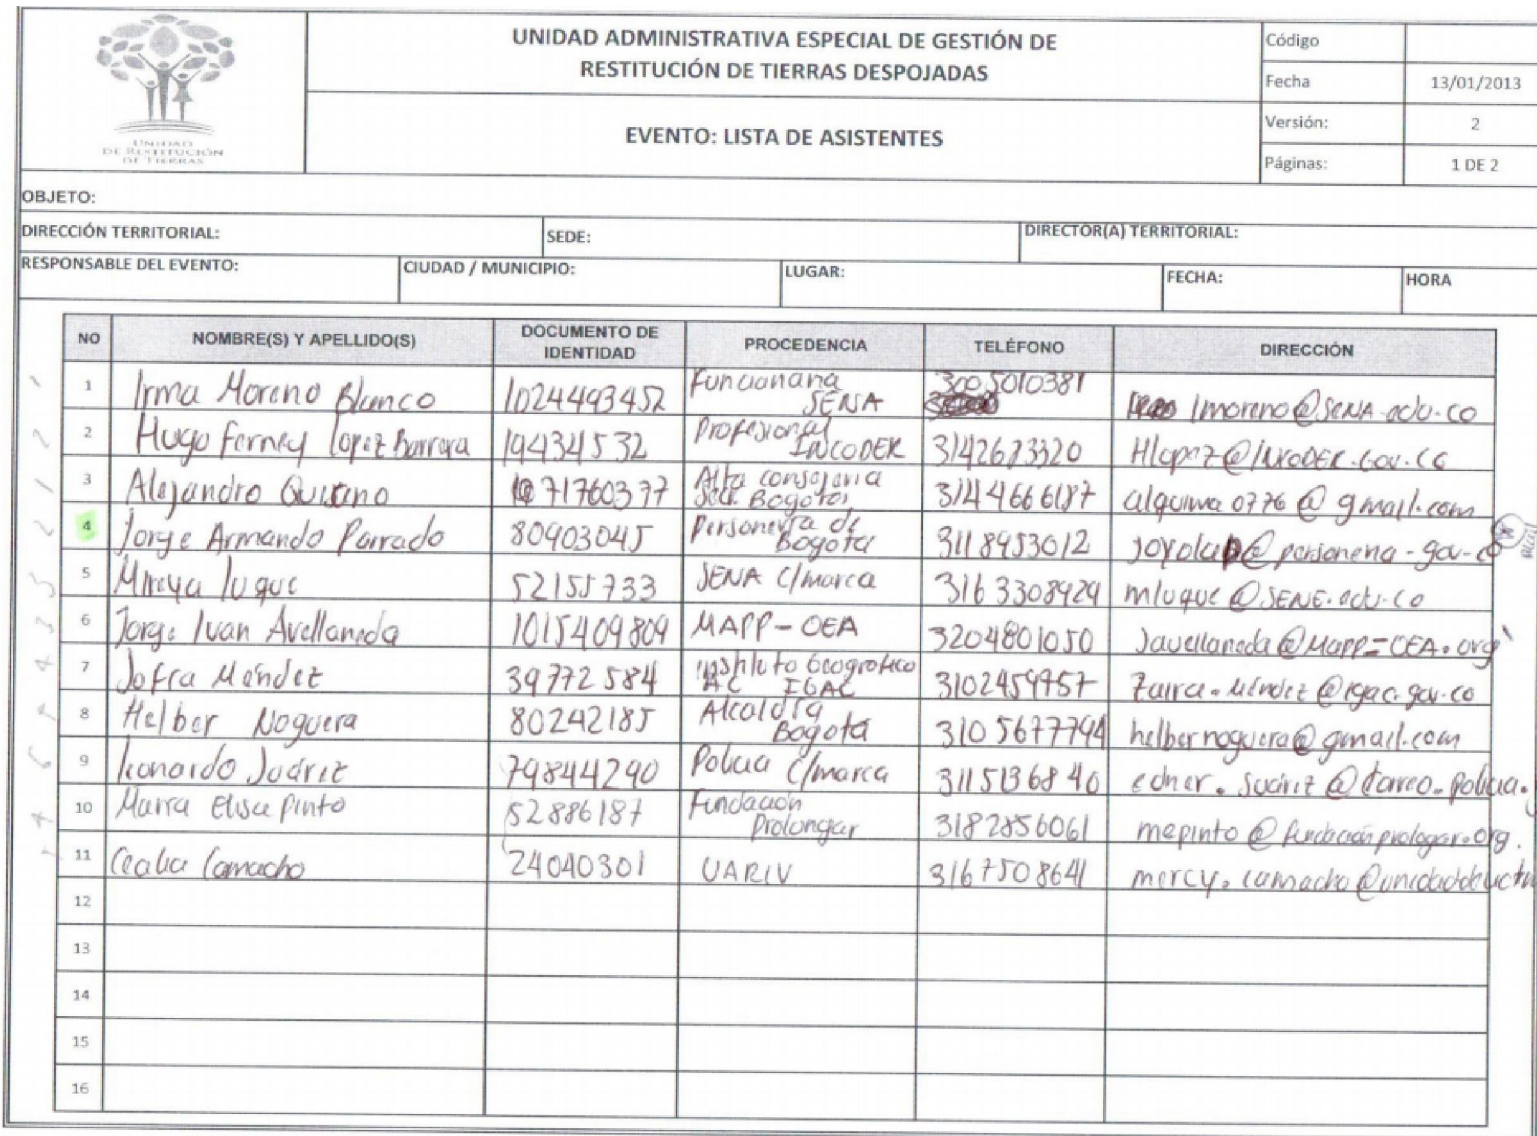 UNIDAD
DE RESTITUCIÓN
DE TIERRAS
UNIDAD ADMINISTRATIVA ESPECIAL DE GESTIÓN DE
RESTITUCIÓN DE TIERRAS DESPOJADAS
EVENTO: LISTA DE ASISTENTES
Código
Fecha 13/01/2013
Versión: 2
Páginas: 1 DE 2
OBJETO:
DIRECCIÓN TERRITORIAL: SEDE: DIRECTOR(A) TERRITORIAL:
RESPONSABLE DEL EVENTO: CIUDAD / MUNICIPIO: LUGAR: FECHA: HORA
NO NOMBRE(S) Y APELLIDO(S) DOCUMENTO DE IDENTIDAD PROCEDENCIA TELÉFONO DIRECCIÓN
1 Irma Moreno Blanco 1024493452 Funcionaria SENA 3005010381 Imoreno@SENA.edu.co
2 Hugo Ferney Lopez Barrera 194345 32 Profesional INCODER 3142673320 Hlopez@INCODER.Gov.Co
3 Alejandro 71760377 Alta consejeria Bogotá 3144666187 alquima0776@gmail.com
4 Jorge Armando Parrado 80903045 Personería de Bogotá 3118953012 @personeria-gov-co
5 Mireya luque 52155733 SENA C/marca 3163308929 mluque@SENE.edu.co
6 Jorge Ivan Avellaneda 1015409809 MAPP-OEA 3204801050 Javellaneda@Mapp-OEA.org
7 Jofra Méndez 39772584 Instituto Geografico AC IGAC 3102459757 Zaira.Méndez@igac.gov.co
8 Helber Noguera 80242185 Alcaldía Bogotá 3105677794 helbernoguera@gmail.com
9 leonardo Suárez 79844290 Policia C/marca 3115136840 edner.suárez@correo.policia.
10 Maria Elisa Pinto 52886187 Fundación Prolongar 3182856061 mepinto@fundacionprologar.org.
11 Cecilia Camacho 24040301 UARIV 3167508641 mercy.camacho@
12
13
14
15
16